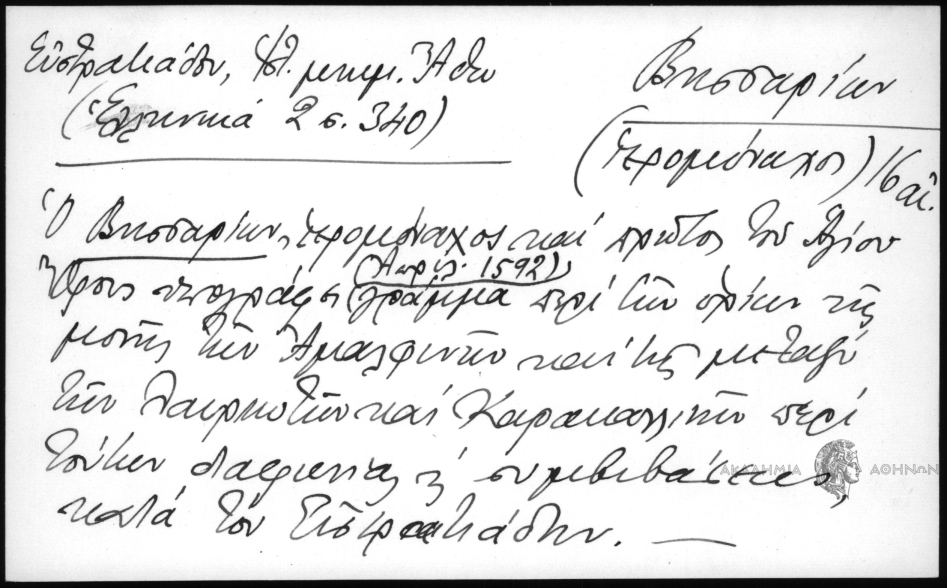 Εὐστρατιάδου, Ἁγ. μνημ. Ἄθω
(Ἑλληνικά 2 σ. 340)
Βησσαρίων
(ἱερομόναχος) 16 αἰ.
Ὁ Βησσαρίων, ἱερομόναχος καί πρῶτος τοῦ Ἁγίου
Ὄρους ὑπογράφει (Ἀπρίλ. 1592) γράμμα περί τῶν ὁρίων τῆς
μονῆς τῶν Ἀμαλφινῶν καί τῆς μεταξύ
τῶν Λαυριωτῶν καί Καρακαλληνῶν περί
τούτων διαφωνίας ἤ συμβιβάσεως,
κατά τόν Εὐστρατιάδην. —
ΑΚΑΔΗΜΙΑ ΑΘΗΝΩΝ